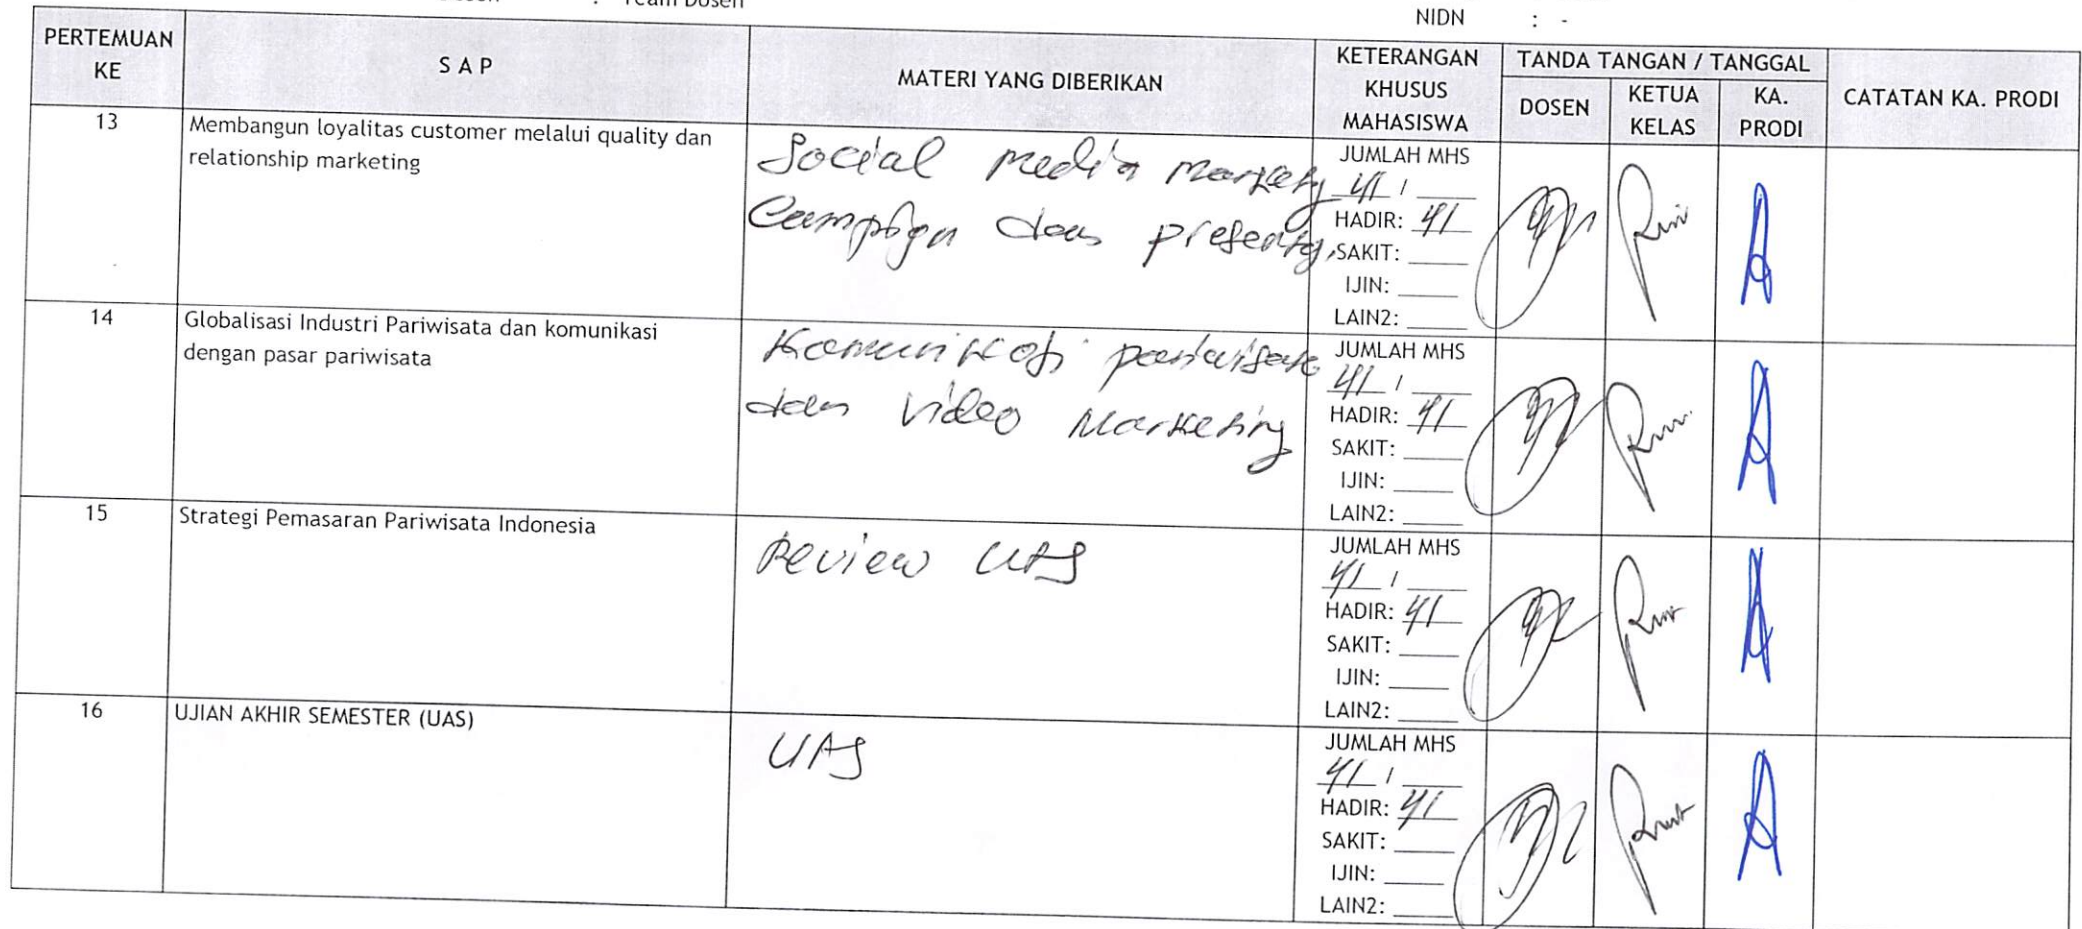 : Team Dosen
NIDN : -
PERTEMUAN KE
S A P
MATERI YANG DIBERIKAN
KETERANGAN KHUSUS MAHASISWA
TANDA TANGAN / TANGGAL
DOSEN
KETUA KELAS
KA. PRODI
CATATAN KA. PRODI
13
Membangun loyalitas customer melalui quality dan
relationship marketing
Social media
dan
JUMLAH MHS
41 / ____
HADIR: 41
SAKIT: ____
IJIN: ____
LAIN2: ____
14
Globalisasi Industri Pariwisata dan komunikasi
dengan pasar pariwisata
Komunikasi pariwisata
dan Video Marketing
JUMLAH MHS
41 / ____
HADIR: 41
SAKIT: ____
IJIN: ____
LAIN2: ____
15
Strategi Pemasaran Pariwisata Indonesia
Review UAS
JUMLAH MHS
41 / ____
HADIR: 41
SAKIT: ____
IJIN: ____
LAIN2: ____
16
UJIAN AKHIR SEMESTER (UAS)
UAS
JUMLAH MHS
41 / ____
HADIR: 41
SAKIT: ____
IJIN: ____
LAIN2: ____